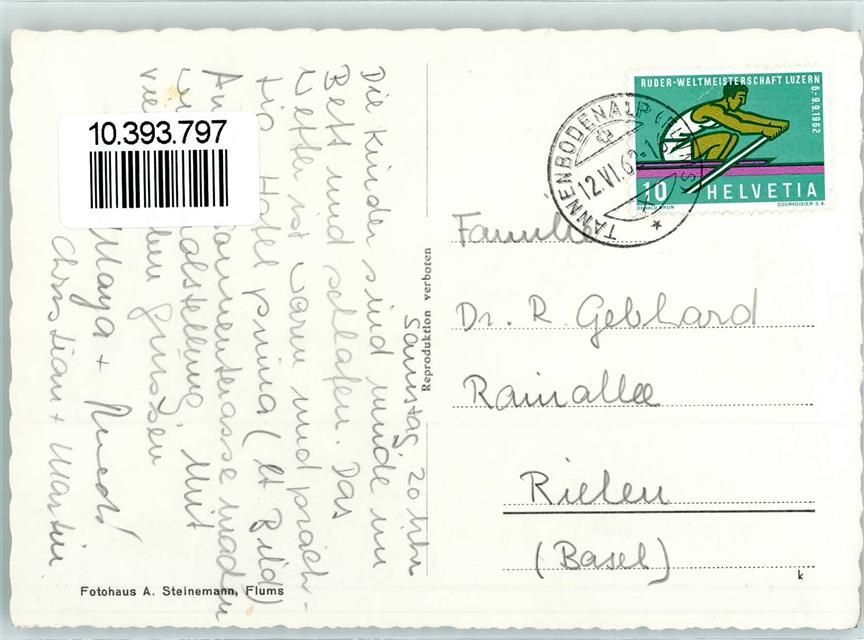 Samstag 20 Uhr
Die Kinder sind müde im
Bett und schlafen. Das
Wetter ist warm und präch-
tig, Hotel prima (lt Bild)
Mit
vielen lieben Grüssen
Maya + Ruedi
Christian + Martin.
10.393.797
Reproduktion verboten
Fotohaus A. Steinemann, Flums
TANNENBODENALP
12.VI.62
RUDER-WELTMEISTERSCHAFT LUZERN
6.-9.9.1962
10 HELVETIA
DONALD BRUN COURVOISIER S.A.
Familie
Dr. R. Gebhard
Rainallee
Riehen
(Basel)
k